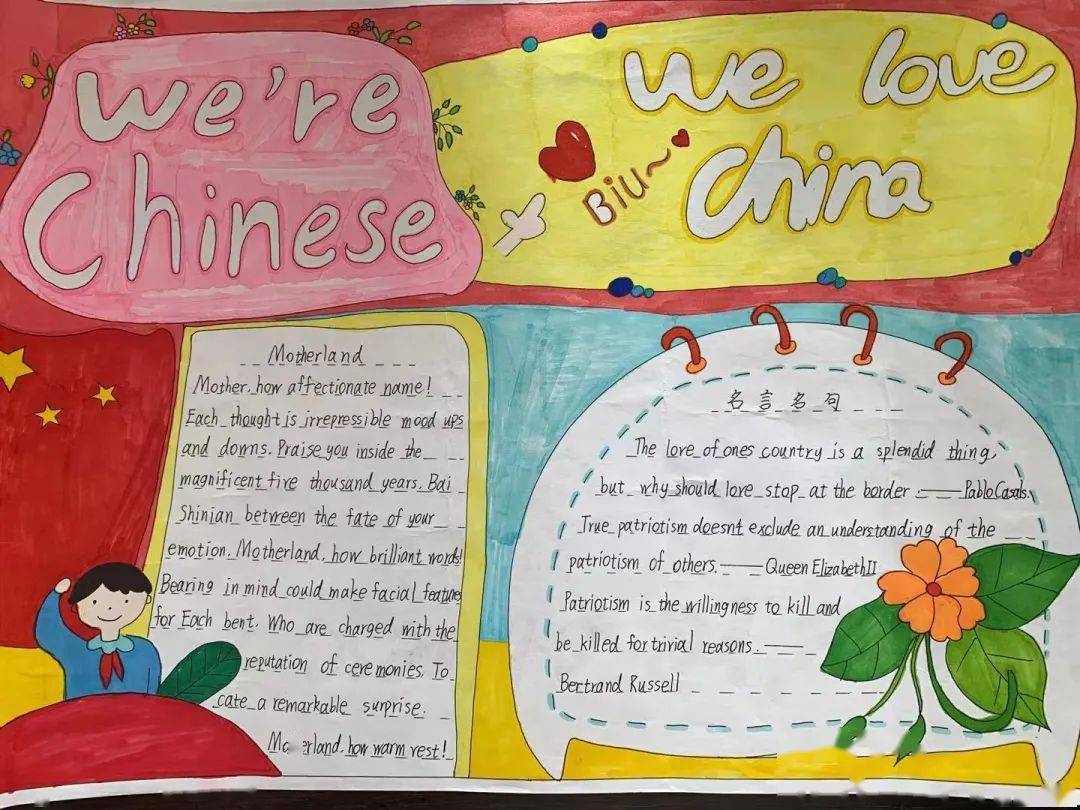 We're
Chinese
We love
China
Biu~
Motherland
Mother, how affectionate name!
Each thought is irrepressible mood ups
and downs. Praise you inside the
magnificent five thousand years. Bai
Shinian between the fate of your
emotion. Motherland, how brilliant words!
Bearing in mind could make facial feature
for Each bent. Who are charged with the
reputation of ceremonies. To
cate a remarkable surprise.
erland, how warm rest!
名言名句
The love of ones country is a splendid thing,
but why should love stop at the border.——Pablo Casals.
True patriotism doesnt exclude an understanding of the
patriotism of others.——Queen Elizabeth II
Patriotism is the willingness to kill and
be killed for trivial reasons.——
Bertrand Russell